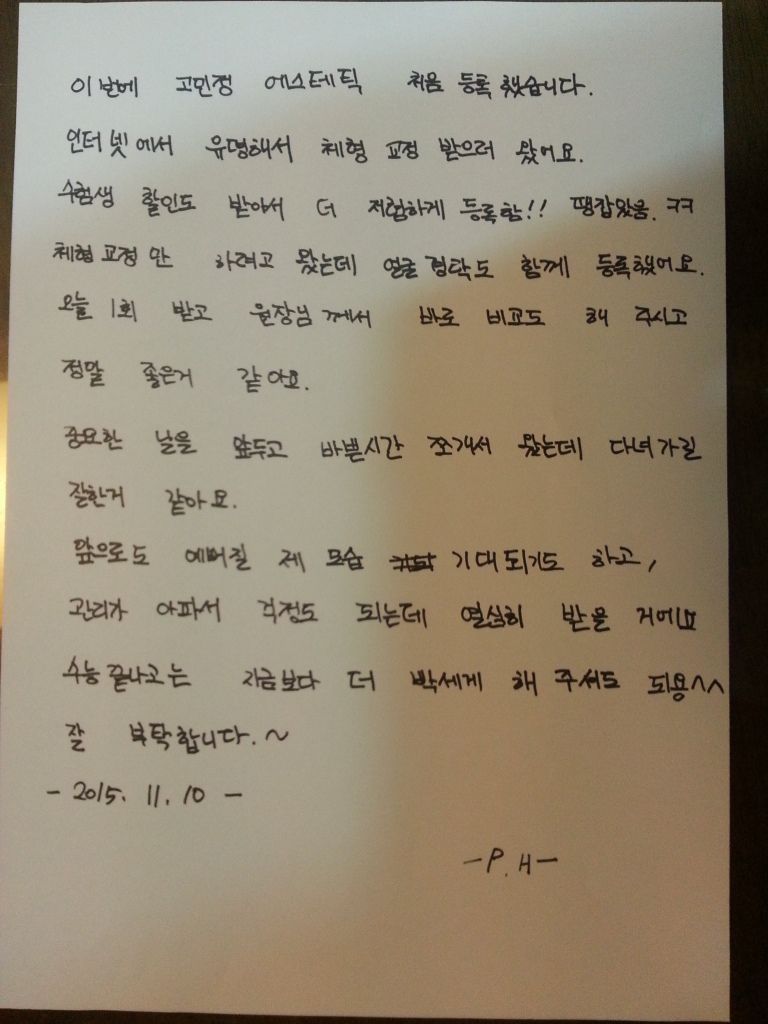 이번에 고민정 에스테틱 처음 등록했습니다.
인터넷에서 유명해서 체형 교정 받으러 왔어요.
수험생 할인도 받아서 더 저렴하게 등록함!! 땡잡았음. ㅋㅋ
체형교정만 하려고 왔는데 얼굴 경락도 함께 등록했어요.
오늘 1회 받고 원장님께서 바로 비교도 해 주시고
정말 좋은거 같아요.
중요한 날을 앞두고 바쁜시간 쪼개서 왔는데 다녀가길
잘한거 같아요.
앞으로도 예뻐질 제 모습 기대되기도 하고,
관리가 아파서 걱정도 되는데 열심히 받을 거에요
수능끝나고는 지금보다 더 빡세게 해 주셔도 되용^^
잘 부탁합니다.~
- 2015. 11. 10 -
- P. H -